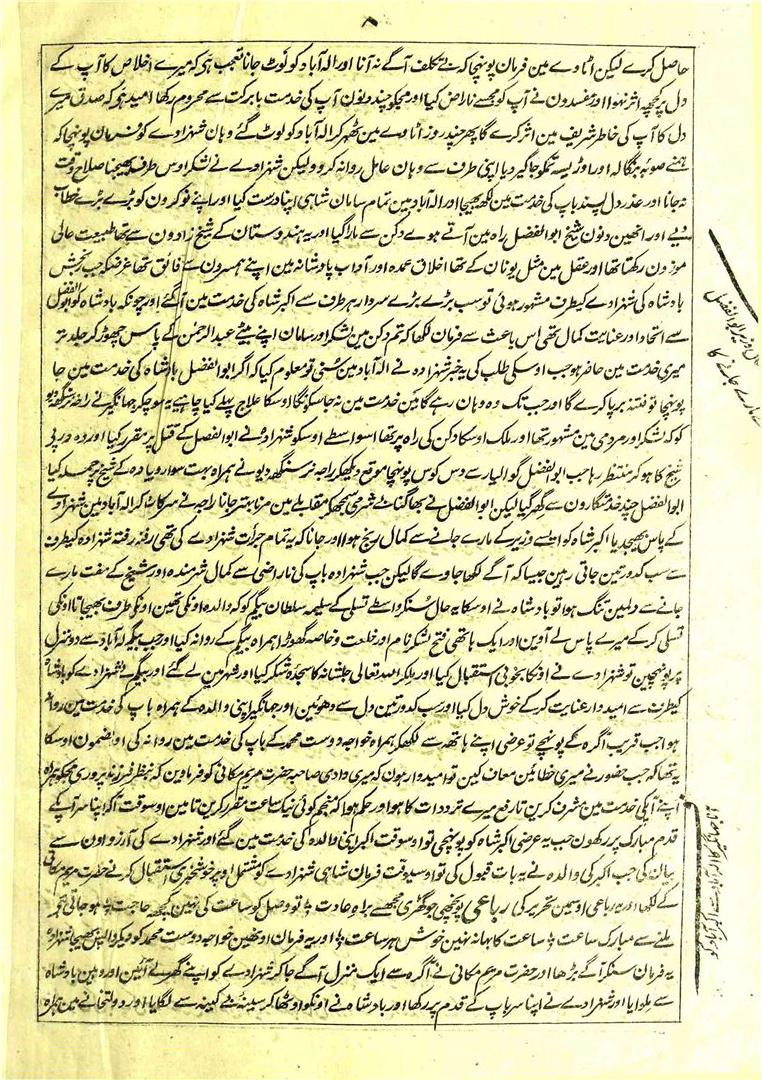 ۸
حاصل کرے لیکن اٹاوے مین فرمان پہونچا کہ بے تکلف آگے نہ آنا اور الہ آباد کو لوٹ جانا تعجب ہی کہ میرے اخلاص کا آپ کے
دل پر کچھہ اثر نہوا اور مفسدون نے آپ کو مجھسے ناراض کیا اور مجکو چند دنون آپ کی خدمت بابرکت سے محروم رکھا امید ہی کہ صدق میرے
دل کا آپ کی خاطر شریف مین اثر کرے گا پھر چند روز اٹاوے مین ٹھہر کر الہ آباد کو لوٹ گئے وہان شہزادے کو فرمان پہونچا کہ
ہمنے صوبہ بنگالہ اور اوڑیسہ تمکو جاگیر دیا اپنی طرف سے وہان عامل روانہ کرو ولیکن شہزادے نے لشکر اوس طرف بھیجنا صلاح وقت
نہ جانا اور عذر دل پسند باپ کی خدمت مین لکھہ بھیجا اور الہ آباد مین تمام سامان شاہی اپنا درست کیا اور اپنے نوکرون کو بڑے بڑے خطاب
دیے اور انھین دنون شیخ ابو الفضل راہ مین آتے ہوے دکن سے مارا گیا اور یہ ہندوستان کے شیخ زادون سے تھا طبیعت عالی
موزون رکھتا تھا اور عقل مین مثل یونان کے تھا اخلاق عمدہ اور آداب پادشاہانہ مین اپنے ہمسرون سے فائق تھا غرضکہ جب رنجش
بادشاہ کی شہزادے کیطرف مشہور ہوئی تو سب بڑے بڑے سردار ہر طرف سے اکبر شاہ کی خدمت مین آگئے اور چونکہ بادشاہ کو ابو الفضل
سے اتحاد اور عنایت کمال تھی اس باعث سے فرمان لکھا کہ تم دکن مین لشکر اور سامان اپنے بیٹے عبد الرحمٰن کے پاس چھوڑ کر جلد تر
میری خدمت مین حاضر ہو جب اوسکی طلب کی یہ خبر شہزادہ نے الہ آباد مین سُنی تو معلوم کیا کہ اگر ابو الفضل بادشاہ کی خدمت مین جا
پہونچا تو فتنہ برپا کرے گا اور جب تک وہ وہان رہے گا مین خدمت مین نہ جا سکونگا اوسکا علاج پہلے کیا چاہیے یہ سوچکر جہانگیر نے راجہ نرسنگھہ دیو
کو کہ لشکر اور مردمی مین مشہور تھا اور ملک اوسکا دکن کی راہ پر تھا اسواسطے اوسکو شہزادہ نے ابو الفضل کے قتل پر مقرر کیا اور وہ درپی
شیخ کا ہو کر منتظر رہا جب ابو الفضل گوالیار سے دس کوس پہونچا موقع دیکھکر راجہ نرسنگھہ دیو نے ہمراہ بہت سوار و پیادہ کے شیخ پر حملہ کیا
ابو الفضل چند خدمتگارون سے گھر گیا لیکن ابو الفضل نے بھاگنا بے شرمی سمجھکر مقابلے مین مرنا بہتر جانا راجہ نے سر کاٹ کر الہ آباد مین شہزادے
کے پاس بھیجدیا اکبر شاہ کو ایسے وزیر کے مارے جانے سے کمال رنج ہوا اور جانا کہ یہ تمام جرأت شہزادے کی تھی رفتہ رفتہ شہزادہ کیطرف
سے سب کدورتین جاتی رہین جیسا کہ آگے لکھا جاوے گا لیکن جب شہزادہ باپ کی ناراضی سے کمال شرمندہ اور شیخ کے مفت مارے
جانے سے دلمین تنگ ہوا تو بادشاہ نے اوسکا یہ حال سُنکر واسطے تسلی کے سلیمہ سلطان بیگم کو کہ والدہ اونکی تھین اونکی طرف بھیجا تا اونکی
تسلی کر کے میرے پاس لے آوین اور ایک ہاتھی فتح لشکر نام اور خلعت و خاصہ گھوڑا ہمراہ بیگم کے روانہ کیا اور جب بیگم الہ آباد سے دو منزل
پر پہونچین تو شہزادے نے اونکا بخوبی استقبال کیا اور ملکر اللہ تعالی جلشانہ کا سجدۂ شکر کیا اور شہر مین لے گئے اور بیگم نے شہزادے کو بادشاہ
کیطرف سے امیدوار عنایت کر کے خوش دل کیا اور سب کدورتین دل سے دھوئین اور جہانگیر اپنی والدہ کے ہمراہ باپ کی خدمت مین روانہ
ہوا جب قریب اگرہ کے پہونچے تو عرضی اپنے ہاتھہ سے لکھکر ہمراہ خواجہ دوست محمد کے باپ کی خدمت مین روانہ کی اور مضمون اوسکا
یہ تھا کہ جب حضور نے میری خطائین معاف کین تو امیدوار ہون کہ میری دادی صاحبہ حضرت مریم مکانی کو فرماوین کہ بنظر فرزند پروری مجکو ہمراہ
اپنے آپکی خدمت مین مشرف کرین تا رفع میرے ترددات کا ہو اور حکم ہوا کہ منجم کوئی نیک ساعت مقرر کرین تا مین اوسوقت آکر اپنا سر آپکے
قدم مبارک پر رکھون جب یہ عرضی اکبر شاہ کو پہونچی تو اوسوقت اکبر اپنی والدہ کی خدمت مین گئے اور شہزادے کی آرزو اون سے
بیان کی جب اکبر کی والدہ نے یہ بات قبول کی تو اوسیوقت فرمان شاہی شہزادے کو مشتمل اوپر خوشخبری استقبال کرنے حضرت مریم مکانی
کے لکھا اور یہ رباعی اوسمین تحریر کی رباعی
ملنے سے مبارک ساعت ساعت کا بہانہ نہین خوش ہر ساعت اور یہ فرمان اونھین خواجہ دوست محمد کو دیکر واپس بھیجا شہزادہ
یہ فرمان سنکر آگے بڑھا اور حضرت مریم مکانی نے اگرہ سے ایک منزل آگے جا کر شہزادے کو اپنے گھر لے آئین اور وہین بادشاہ
سے ملوایا اور شہزادے نے اپنا سر باپ کے قدم پر رکھا اور بادشاہ نے اونکو اوٹھا کر سینۂ بے کینہ سے لگایا اور دولتخانے مین ہمراہ